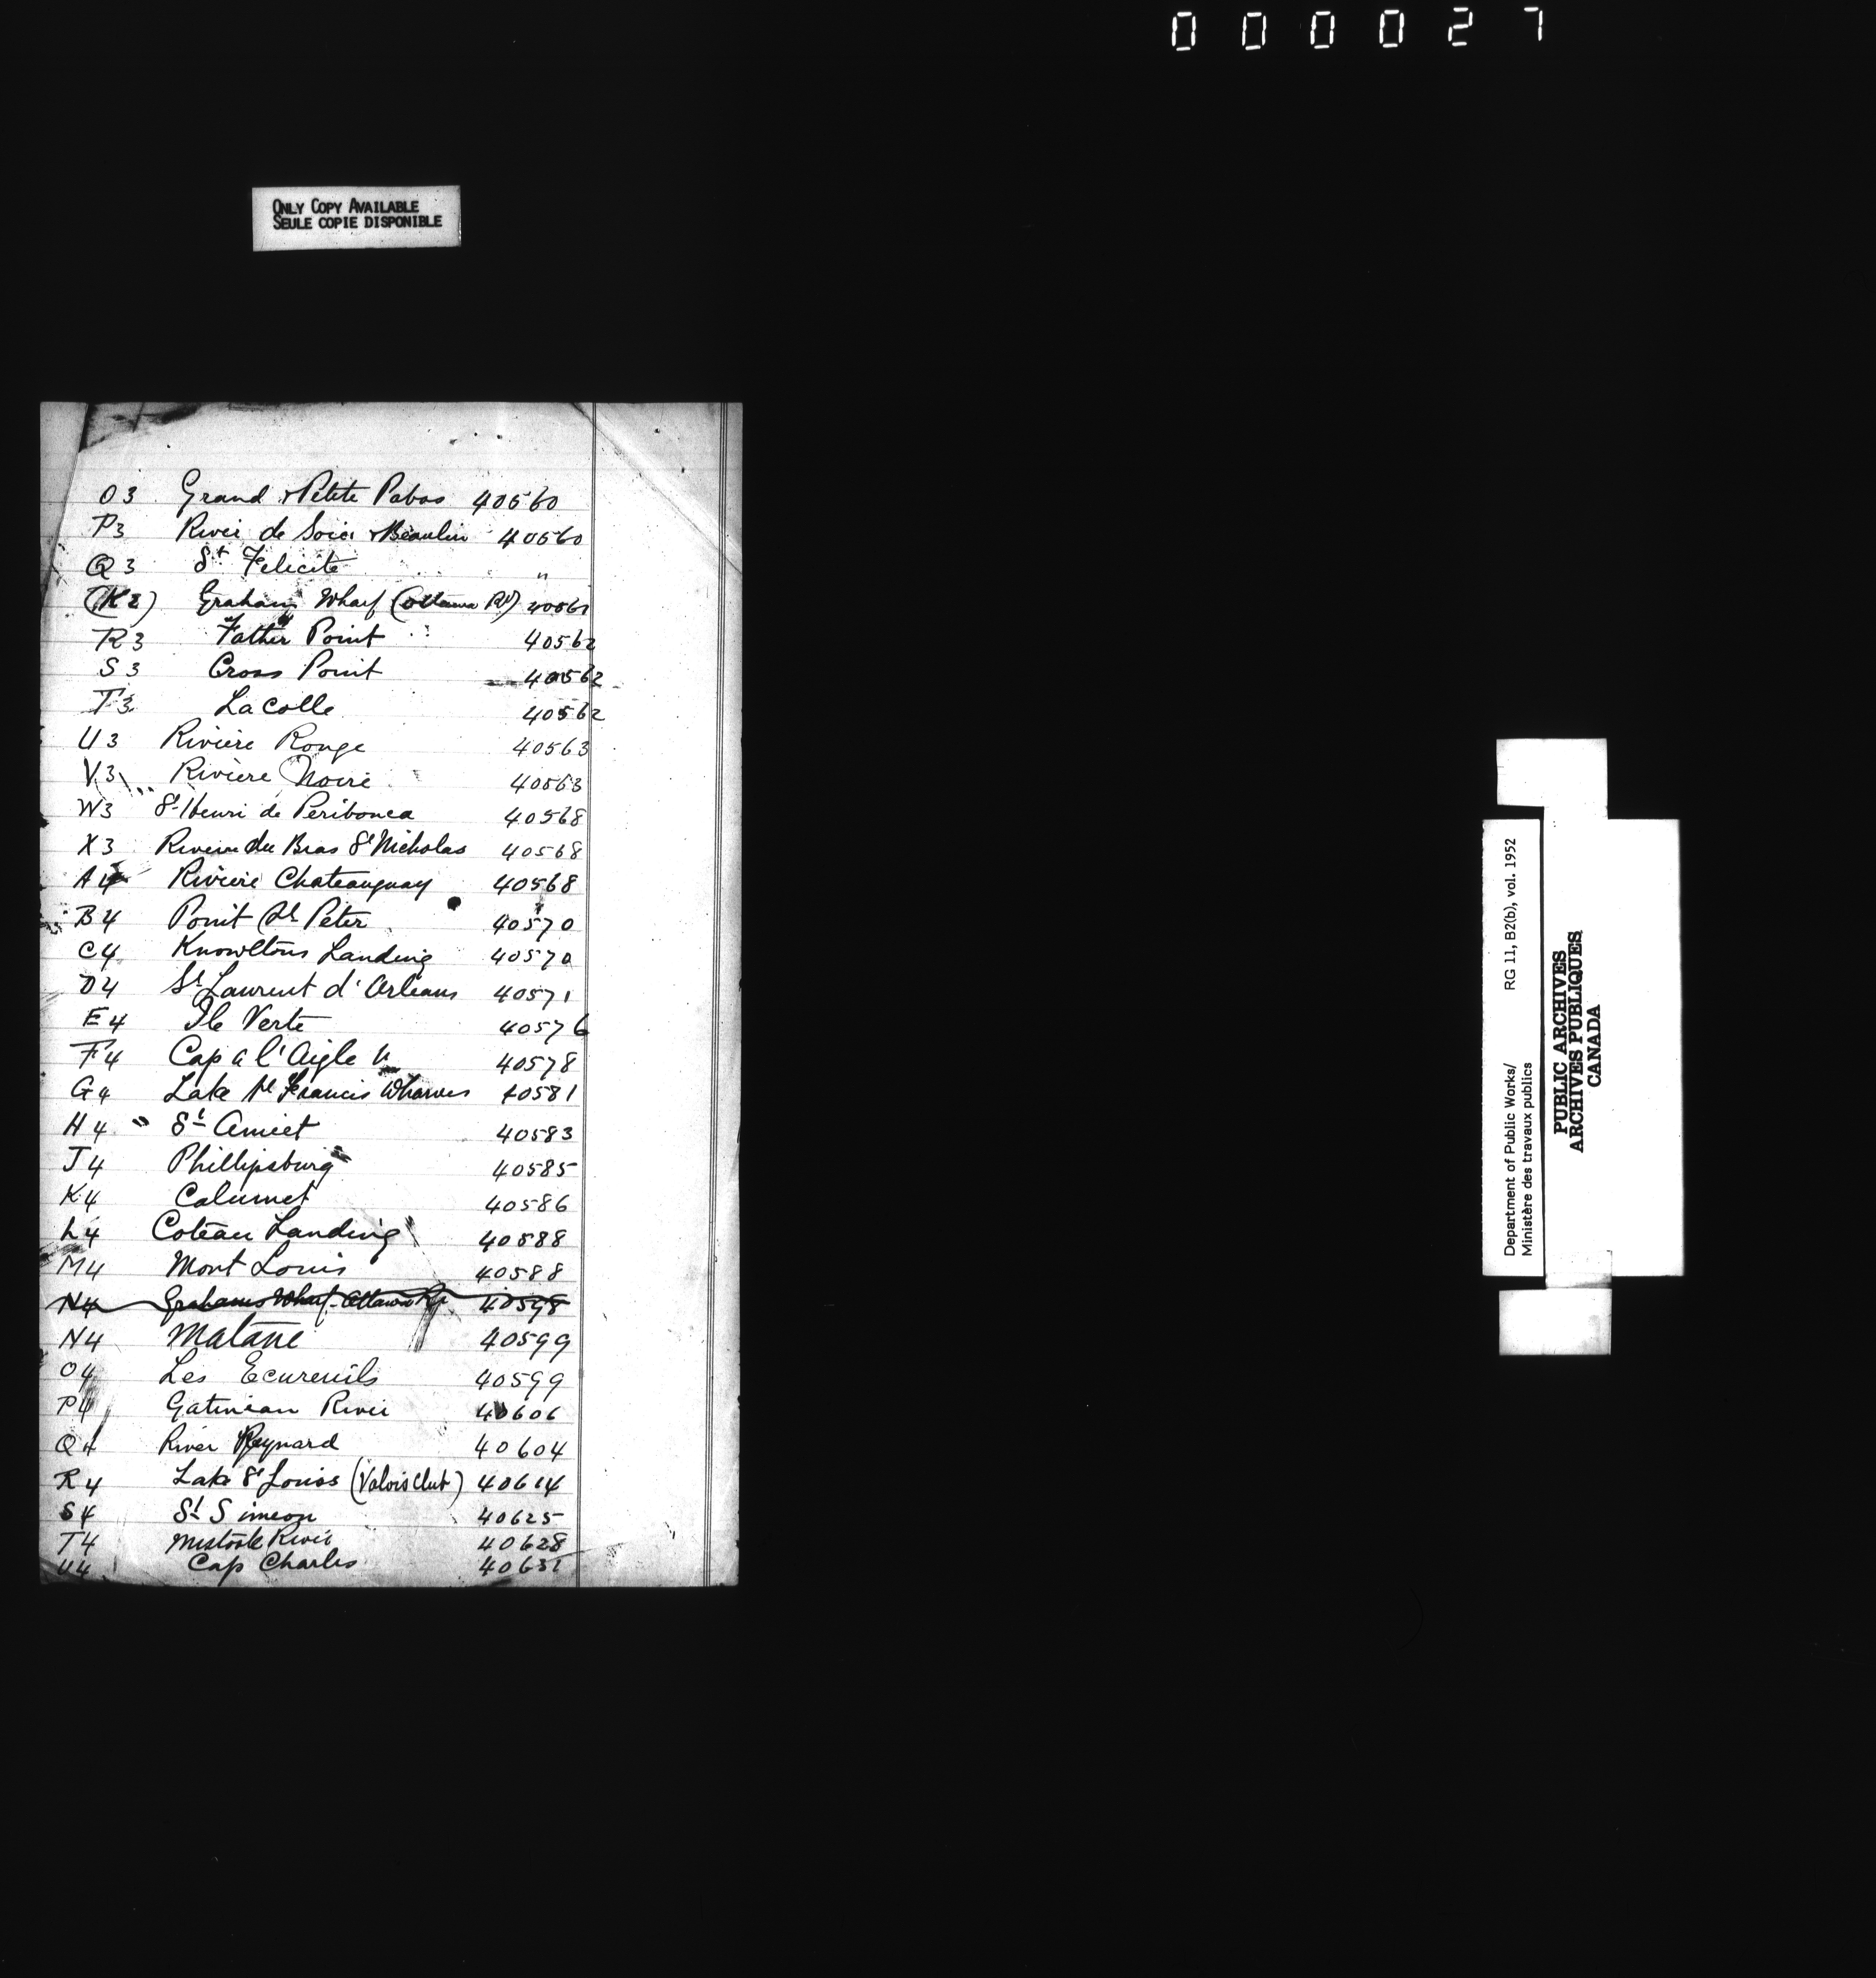 000027
ONLY COPY AVAILABLE
SEULE COPIE DISPONIBLE
O3 Grand & Petite Pabos 40560
P3 River de Soie & Beaulieu 40560
Q3 St Felicite "
(K2) Grahams Wharf (Ottawa Rr) 40561
R3 Father Point 40562
S3 Cross Point 40562
T3 Lacolle 40562
U3 Riviere Rouge 40563
V3 Riviere Noire 40563
W3 St Henri de Peribonca 40568
X3 Riviere du Bras St Nicholas 40568
A4 Riviere Chateauguay 40568
B4 Point St Peter 40570
C4 Knowltons Landing 40570
D4 St Laurent d'Orleans 40571
E4 Ile Verte 40576
F4 Cap a l'Aigle 40578
G4 Lake St Francis Wharves 40581
H4 " St Anicet 40583
J4 Phillipsburg 40585
K4 Calumet 40586
L4 Coteau Landing 40588
M4 Mont Louis 40588
N4 Grahams Wharf - Ottawa Rr 40598
N4 Matane 40599
O4 Les Ecureuils 40599
P4 Gatineau River 40606
Q4 River Reynard 40604
R4 Lake St Louis (Valois Club) 40614
S4 St Simeon 40625
T4 River 40628
U4 Cap Charles 40631
Department of Public Works/ RG 11, B2(b), vol. 1952
Ministère des travaux publics
PUBLIC ARCHIVES
ARCHIVES PUBLIQUES
CANADA